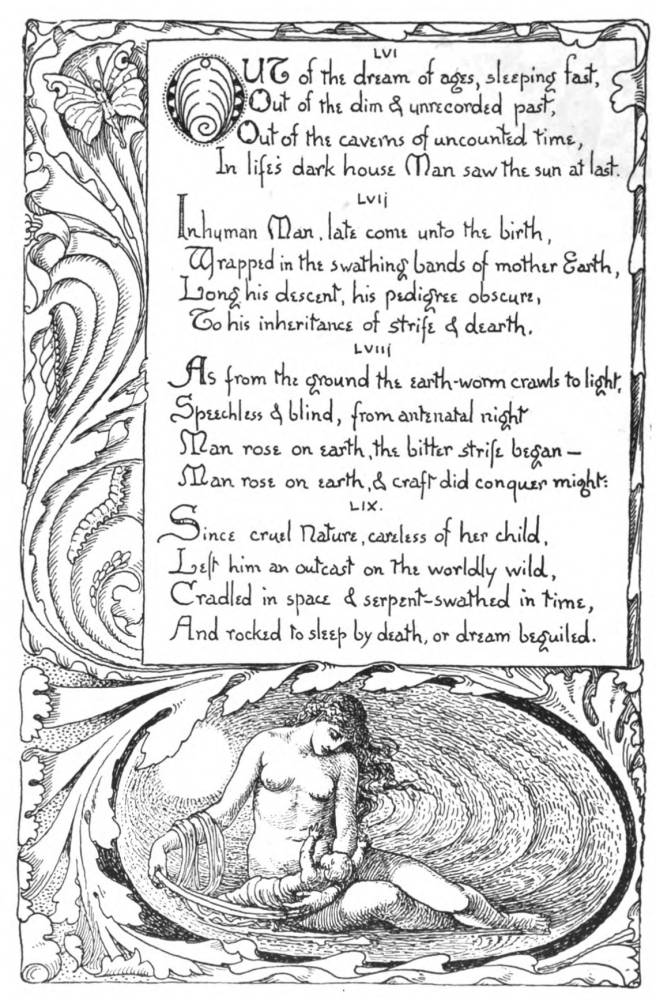 LVI
OUT of the dream of ages, sleeping fast,
Out of the dim & unrecorded past,
Out of the caverns of uncounted time,
In life's dark house Man saw the sun at last.
LVIJ
Inhuman Man, late come unto the birth,
Wrapped in the swathing bands of mother Earth,
Long his descent, his pedigree obscure,
To his inheritance of strife & dearth.
LVIIJ
As from the ground the earth-worm crawls to light,
Speechless & blind, from antenatal night
Man rose on earth, the bitter strife began—
Man rose on earth, & craft did conquer might:
LIX.
Since cruel Nature, careless of her child,
Left him an outcast on the worldly wild,
Cradled in space & serpent-swathed in time,
And rocked to sleep by death, or dream beguiled.